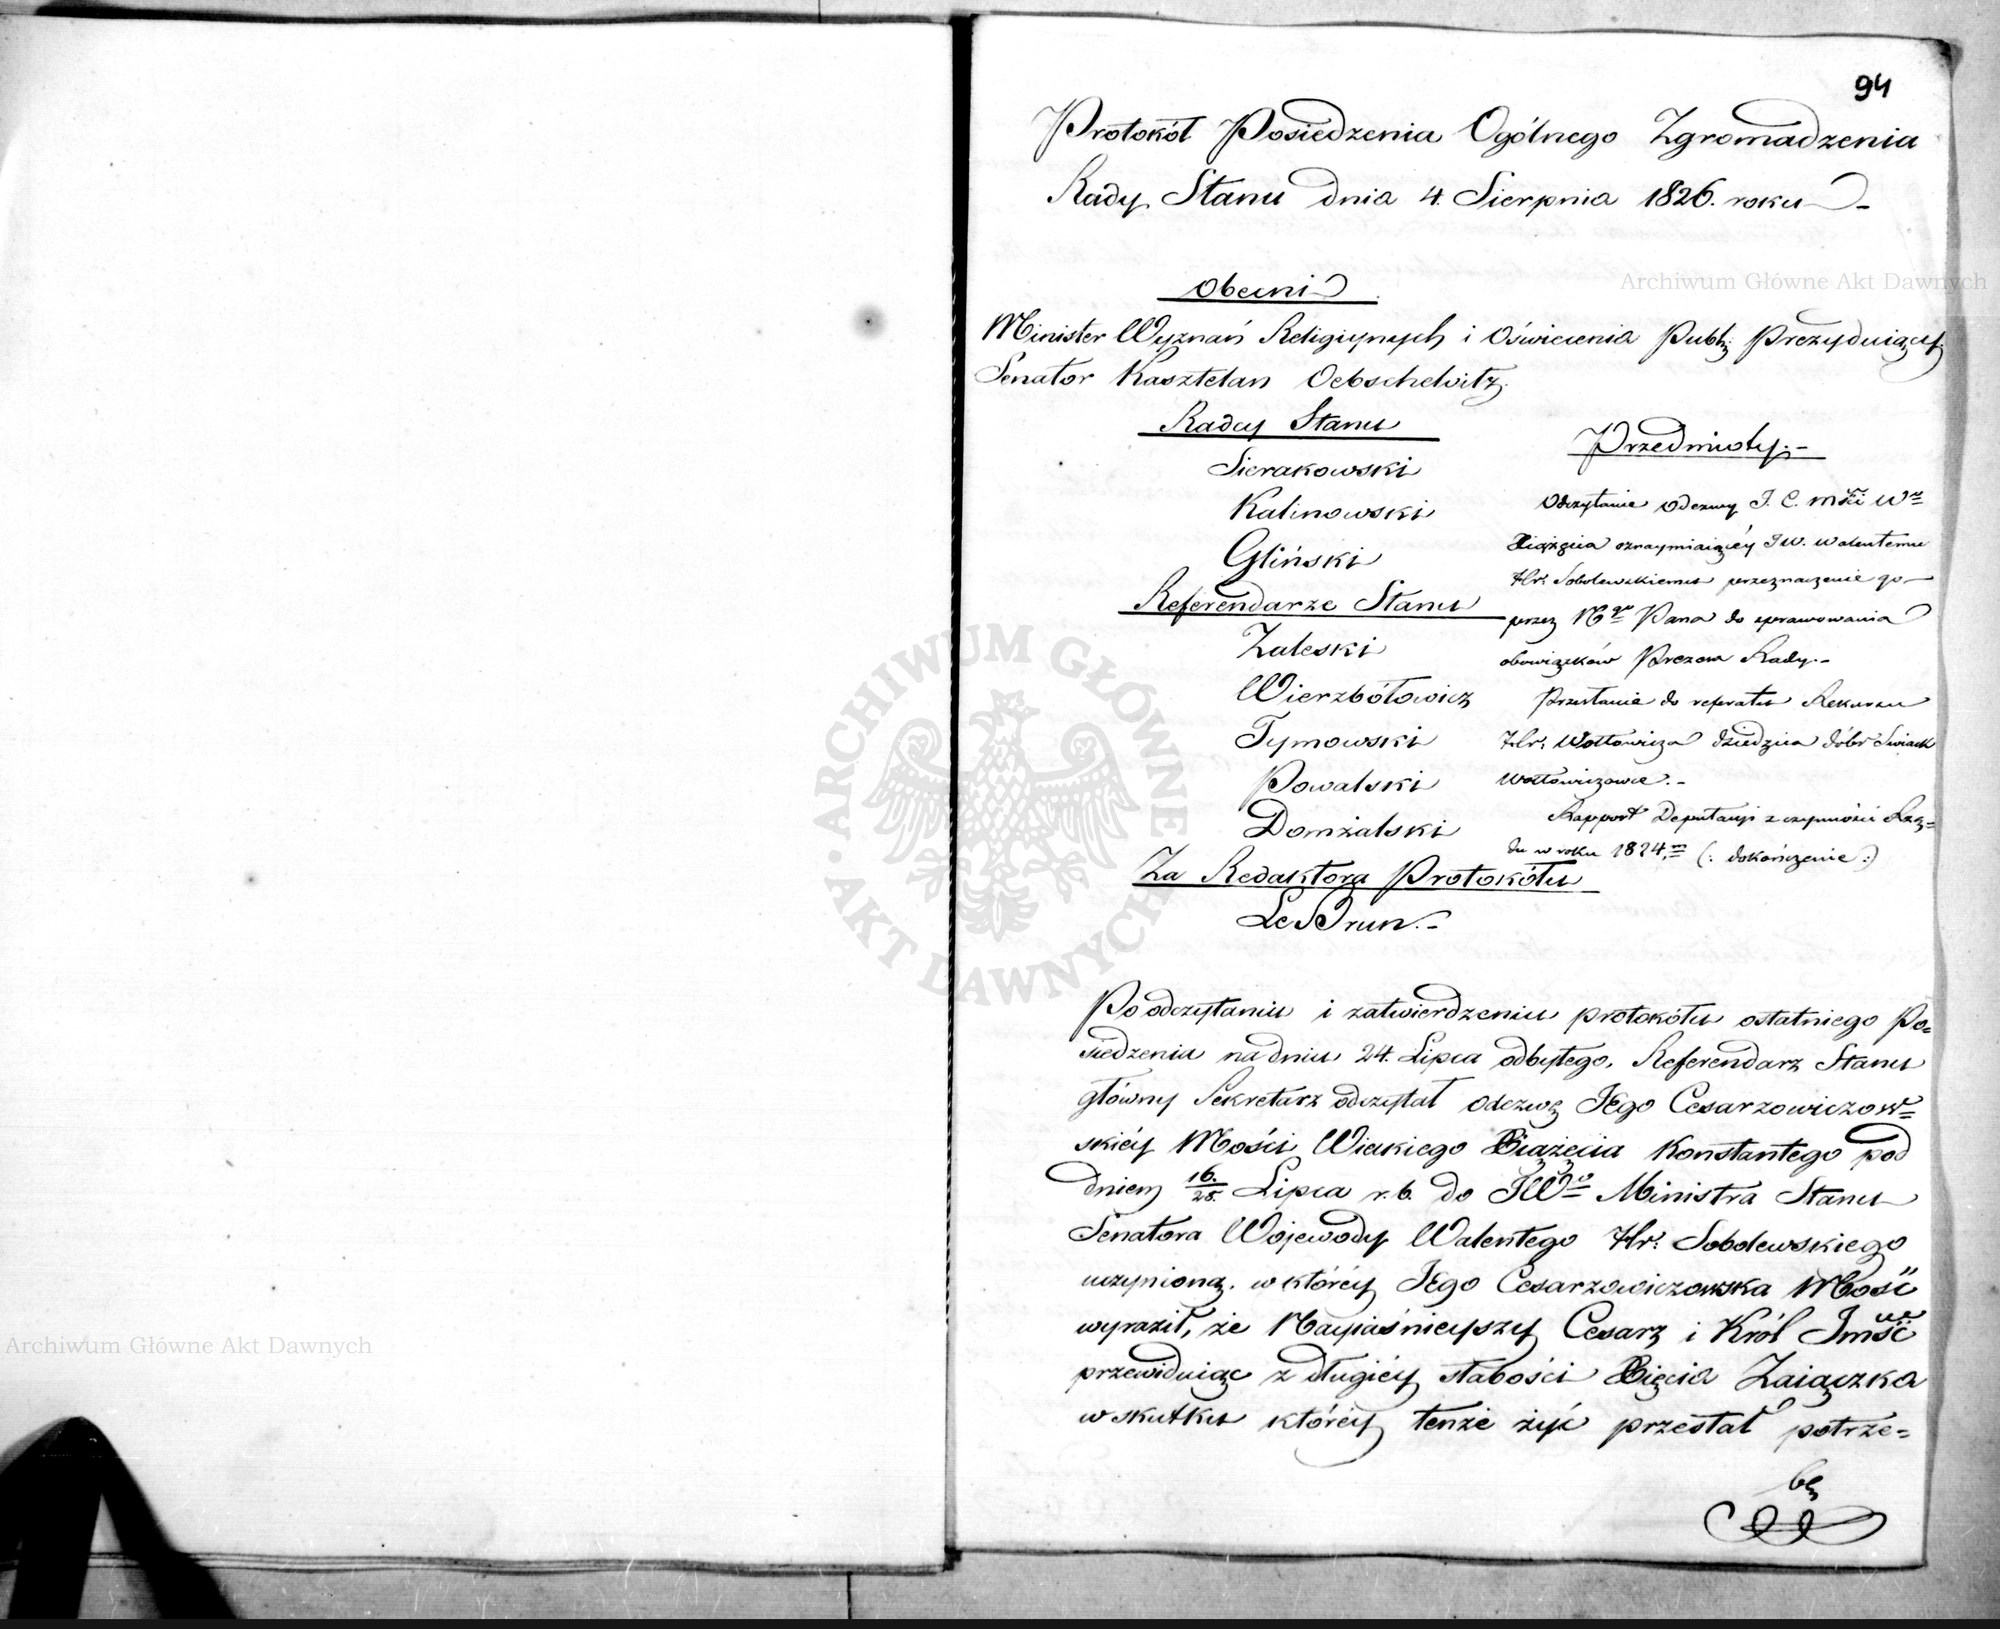 94
Protokół Posiedzenia Ogólnego Zgromadzenia
Rady Stanu dnia 4. Sierpnia 1826. roku
Obecni
Minister Wyznań Religijnych i Oświecenia Publ: Prezyduiący
Senator Kasztelan Oebschelwitz.
Radcy Stanu
Sierakowski
Kalinowski
Gliński
Referendarze Stanu
Zaleski
Wierzbółowicz
Tymowski
Powalski
Domżalski
Za Redaktora Protokółu
Le Brun.-
Przedmioty:-
Odczytanie odezwy J. C. Mści Wo
Xiążęcia oznaymiaiącéy JW. Walentemu
Hr: Sobolewskiemu przeznaczenie go
przez Ngo Pana do sprawowania
obowiązków Prezesa Rady.-
Przesłanie do referatu Rekursu
Hr: Wołłowicza dziedzica dóbr Swiack
Wołłowiczowce.-
Rapport Deputacyi z czynności Rzą=
du w roku 1824. (: dokończenie:)
Po odczytaniu i zatwierdzeniu protokółu ostatniego Po=
siedzenia na dniu 24. Lipca odbytego, Referendarz Stanu
główny Sekretarz odczytał odezwę Jego Cesarzowiczow=
skiéy Mości Wielkiego Xiążęcia Konstantego pod
dniem 16./28. Lipca r. b. do JWo Ministra Stanu
Senatora Wojewody Walentego Hr: Sobolewskiego
uczynioną, w któréy Jego Cesarzowiczowska Mość
wyraził, że Nayiaśnieyszy Cesarz i Król Jmść
przewiduiąc z długiéy słabości Xięcia Zaiączka
w skutku któréy tenże żyć przestał potrze=
bę
Archiwum Główne Akt Dawnych
Archiwum Główne Akt Dawnych
ARCHIWUM GŁÓWNE
AKT DAWNYCH